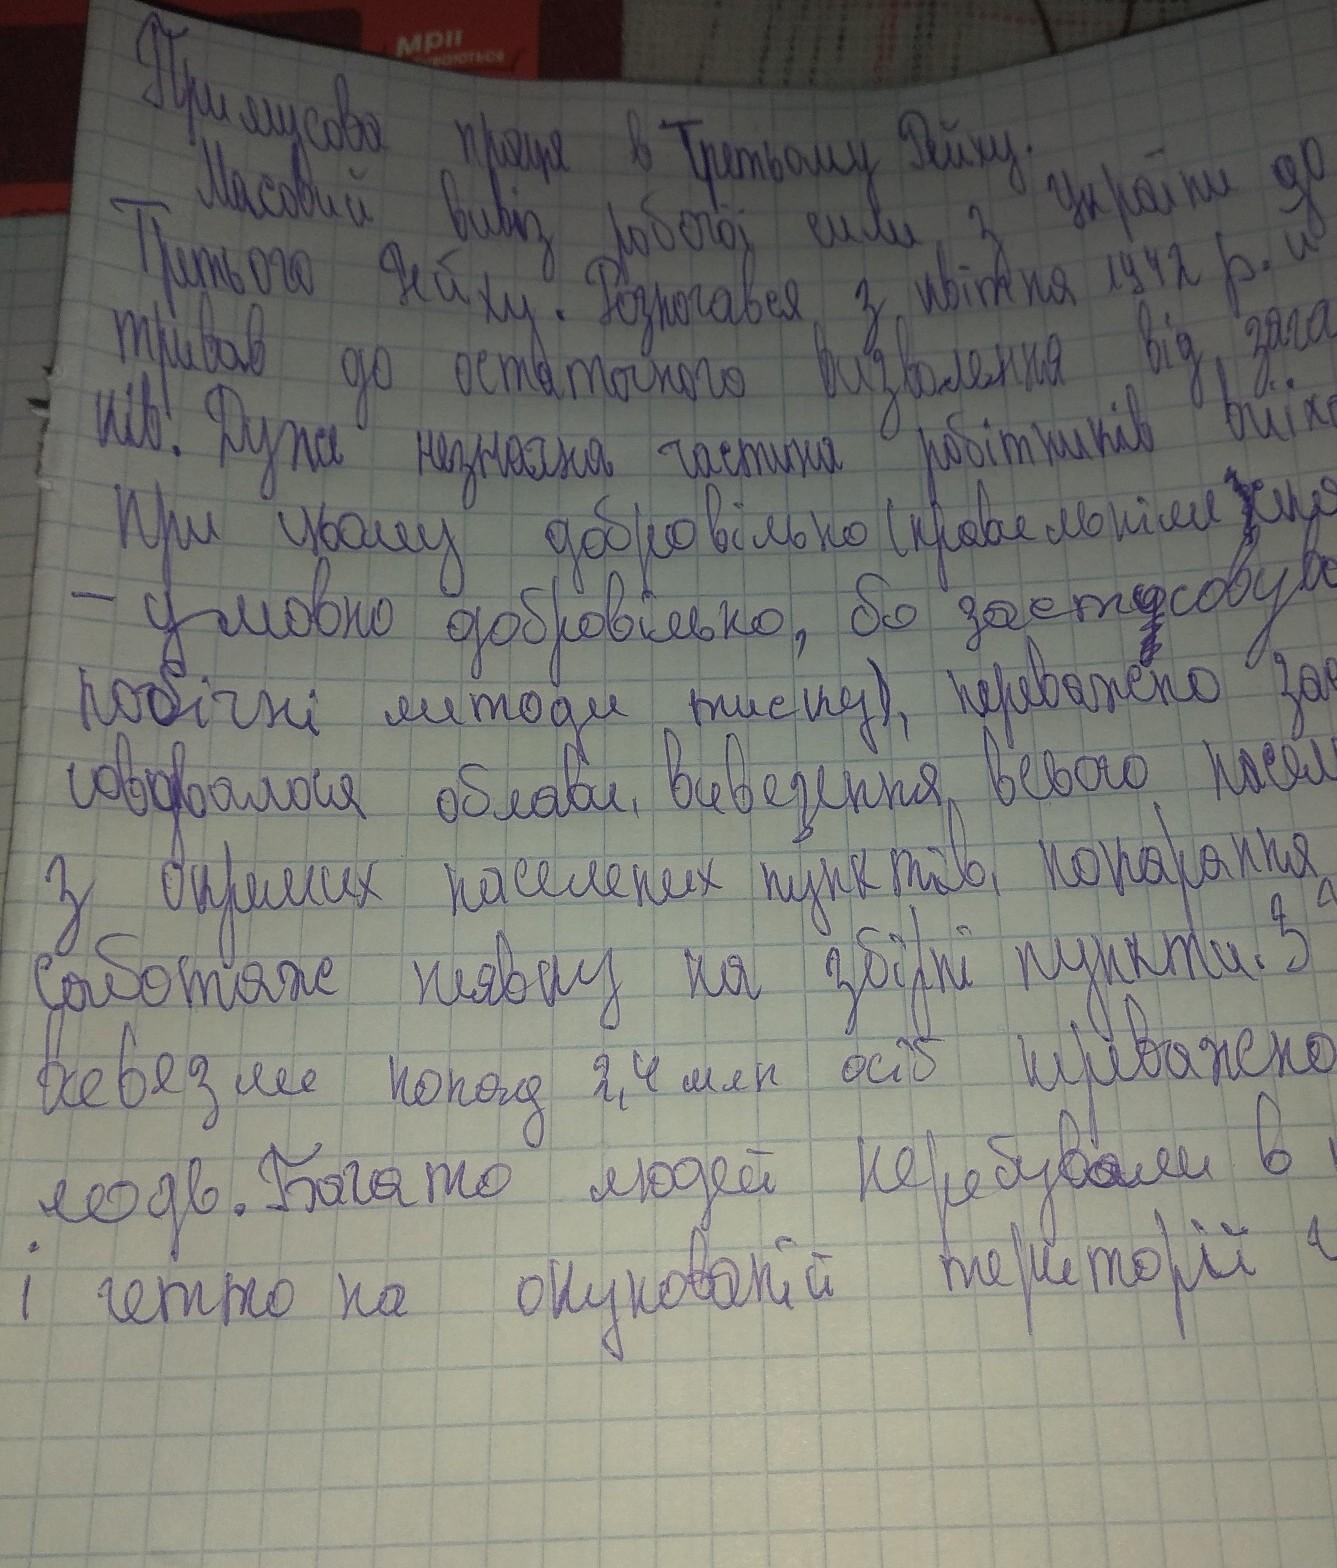 Мрії
Примусова праця в Третьому Рейху.
Масовий вивіз робочої сили з України до
Третього Рейху. Розпочався з квітня 1942 р. й
тривав до остаточного визволення від зага
нів. Дуже незначна частина робітників виїха
при цьому добровільно (правильніше
– умовно добровільно, бо застосовува
побічні методи тиску), переважно зас
совувалося облави, виведення всього насел
з окремих населених пунктів, покарання
саботаж неявку на збірні пункти. З
вивезли понад 2,4 млн осіб преважно
лодь. Багато людей перебували в
і гетто на окупованій території